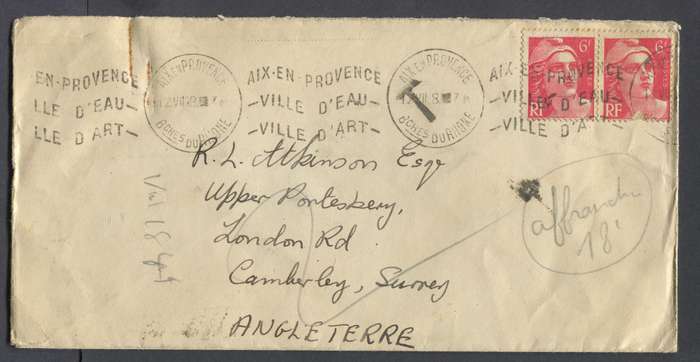 EN-PROVENCE
LLE D'EAU-
LLE D'ART-
AIX-EN-PROVENCE
BCHES DU RHONE
AIX-EN-PROVENCE
-VILLE D'EAU-
-VILLE D'ART-
AIX-EN-PROVENCE
BCHES DU RHONE
AIX-EN-PROVENCE
-VILLE D'EAU-
-VILLE D'ART-
6F
RF
6F
RF
T
R. L. Atkinson Esqr
Upper Pontesbery,
London Rd
Camberley, Surrey
ANGLETERRE
affranchir
18f